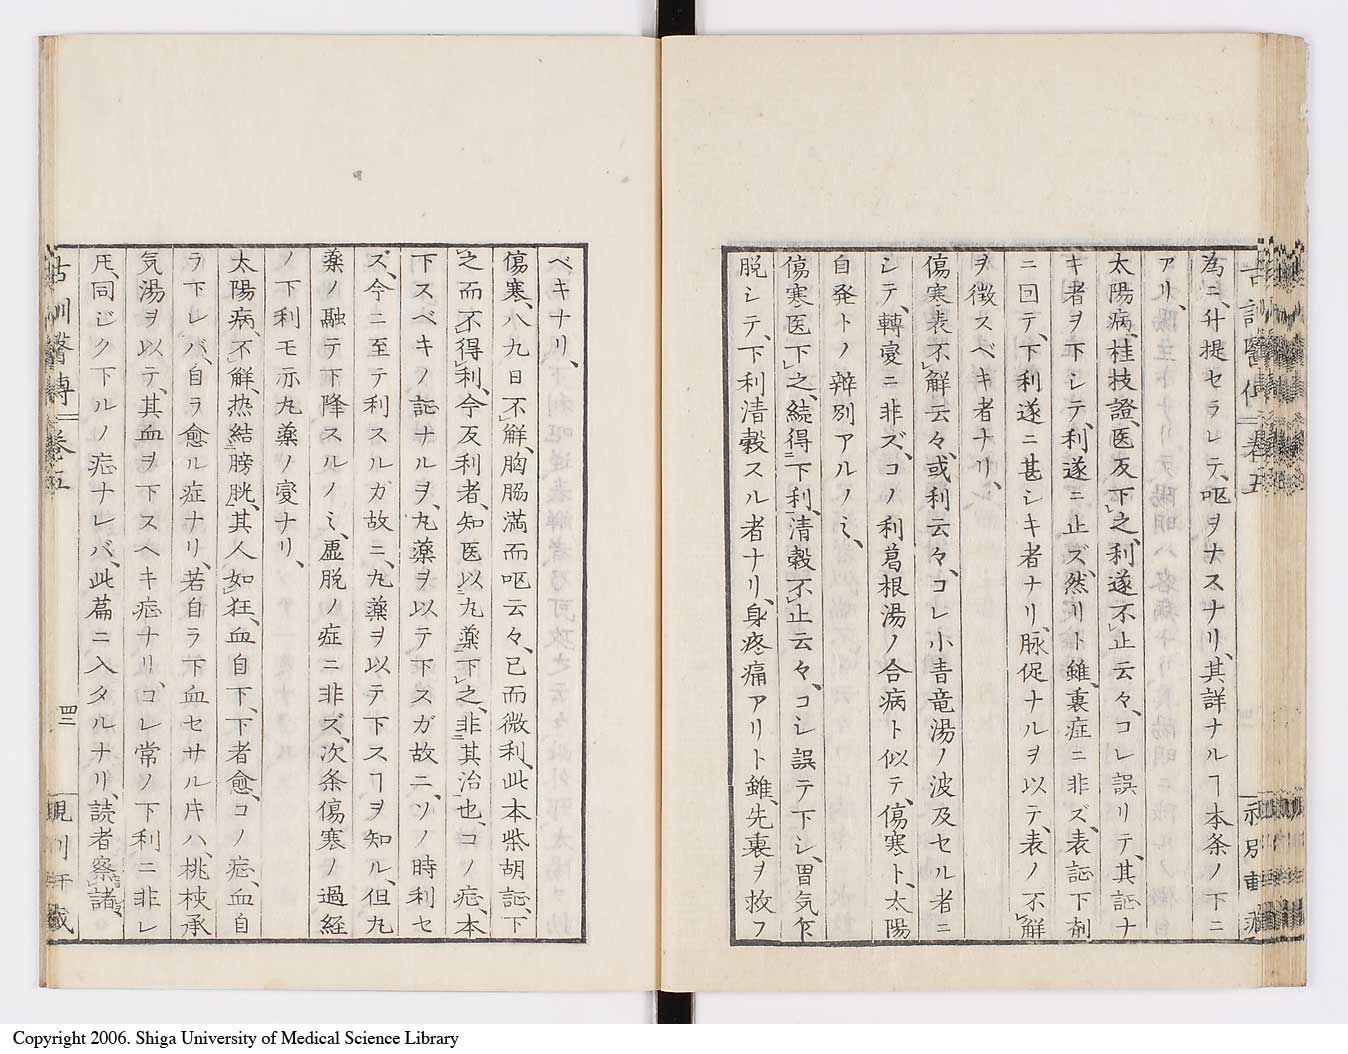 為ニ、升提セラレテ、嘔ヲナスナリ、其詳ナルヿ本条ノ下ニ
アリ、
太陽病、桂技證、医反下之、利遂不止云々、コレ誤リテ、其証ナ
キ者ヲ下シテ、利遂ニ止ズ、然リト雖、裏症ニ非ズ、表証下剤
ニ回テ、下利遂ニ甚シキ者ナリ、脉促ナルヲ以テ、表ノ不解
ヲ徴スベキ者ナリ、
傷寒表不解云々、或利云々、コレ小青竜湯ノ波及セル者ニ
シテ、轉変ニ非ズ、コノ利葛根湯ノ合病ト似テ、傷寒ト、太陽
自発トノ辨別アルノミ、
傷寒医下之、続得下利、清穀不止云々、コレ誤テ下シ、胃気下
脱シテ、下利清穀スル者ナリ、身疼痛アリト雖、先裏ヲ救フ
ベキナリ、
傷寒、八九日不解、胸脇満而嘔云々、已而微利、此本柴胡証、下
之而不得利、今反利者、知医以丸薬下之、非其治也、コノ症、本
下スベキノ証ナルヲ、丸薬ヲ以テ下スガ故ニ、ソノ時利セ
ズ、今ニ至テ利スルガ故ニ、丸薬ヲ以テ下スヿヲ知ル、但丸
薬ノ融テ下降スルノミ、虚脱ノ症ニ非ズ、次条傷寒ノ過経
ノ下利モ亦丸薬ノ変ナリ、
太陽病、不解、热結膀胱、其人如狂、血自下、下者愈、コノ症、血自
ラ下レバ、自ラ愈ル症ナリ、若自ラ下血セサル片ハ、桃核承
気湯ヲ以テ、其血ヲ下スヘキ症ナリ、コレ常ノ下利ニ非レ
𪜈、同ジク下ルノ症ナレバ、此篇ニ入タルナリ、読者察諸、
古訓醫傳 巻五
四二
Copyright 2006. Shiga University of Medical Science Library